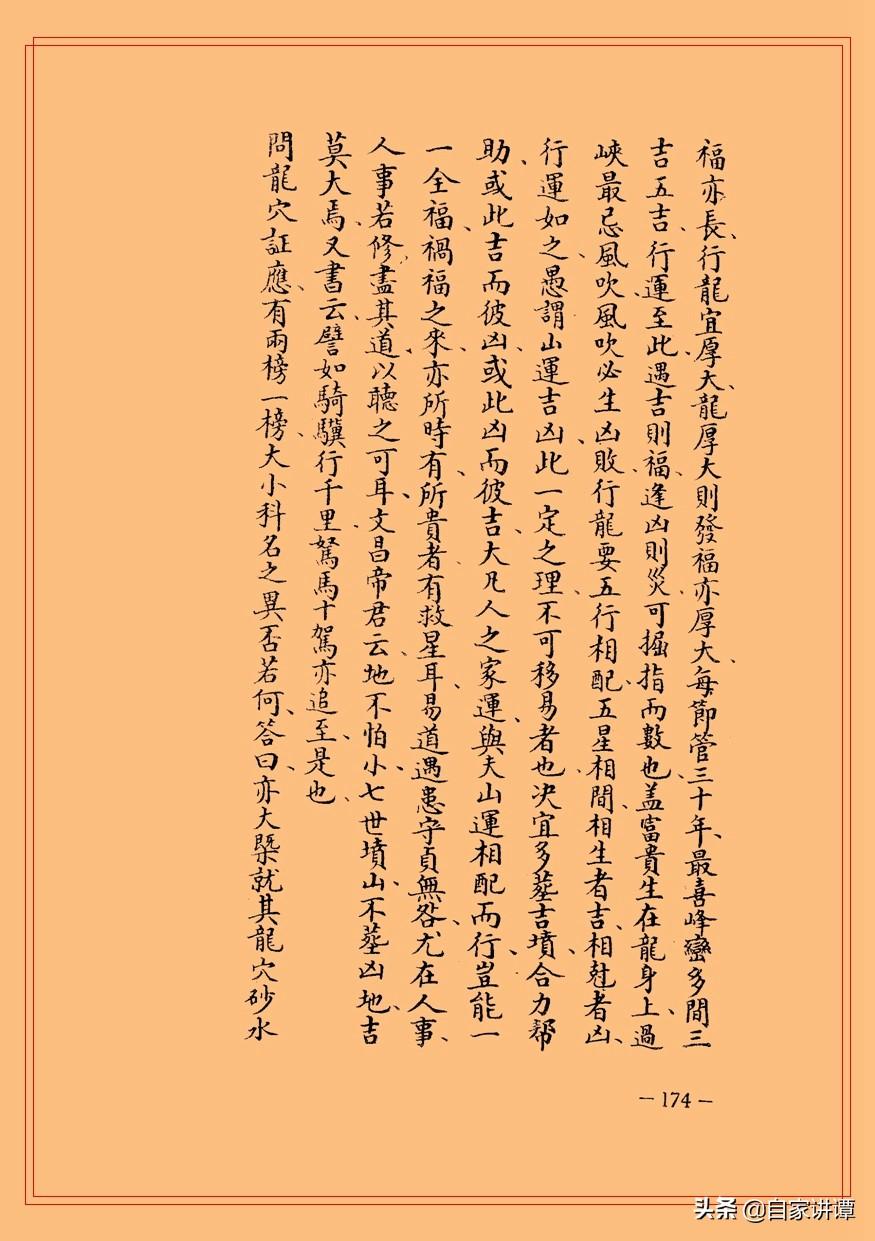 福亦長、行龍宜厚大、龍厚大則發福亦厚大、每節管三十年、最喜峰巒多間三
吉五吉、行運至此、遇吉則福、逢凶則災、可掘指而數也、盖富貴生在龍身上、過
峽最忌風吹風吹必生凶敗行龍要五行相配、五星相間、相生者吉、相尅者凶、
行運如之、愚謂山運吉凶此一定之理、不可移易者也、决宜多塟吉墳、合力幚
助、或此吉而彼凶、或此凶而彼吉、大凡人之家運、與夫山運相配而行、豈能一
一全福、禍福之來、亦所時有、所貴者有救星耳、易道遇患守貞無咎、尤在人事、
人事若修、盡其道、以聽之可耳、文昌帝君云、地不怕小、七世墳山、不塟凶地、吉
莫大焉、又書云、譬如騎驥、行千里、駑馬十駕亦追至、是也、
問龍穴証應、有兩榜一榜、大小科名之異否若何、答曰、亦大槩就其龍穴砂水
－174－
头条 @自家讲谭